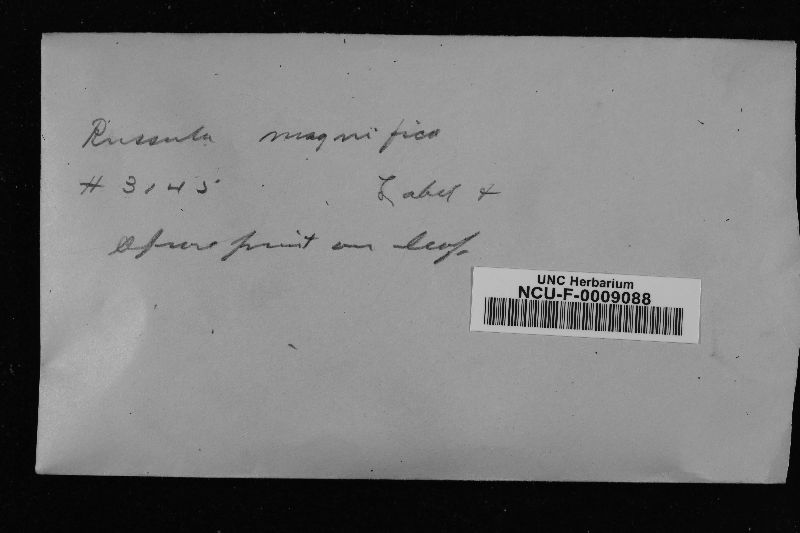 Russula magnifica
# 3145 Label &
Spore print on leaf.
UNC Herbarium
NCU-F-0009088